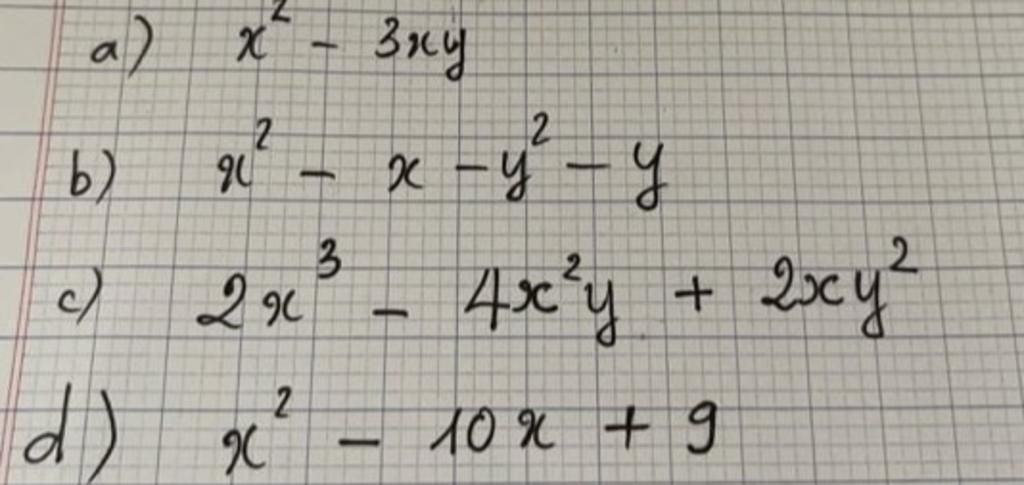 a) x² - 3xy
b) x² - x - y² - y
c) 2x³ - 4x²y + 2xy²
d) x² - 10x + 9